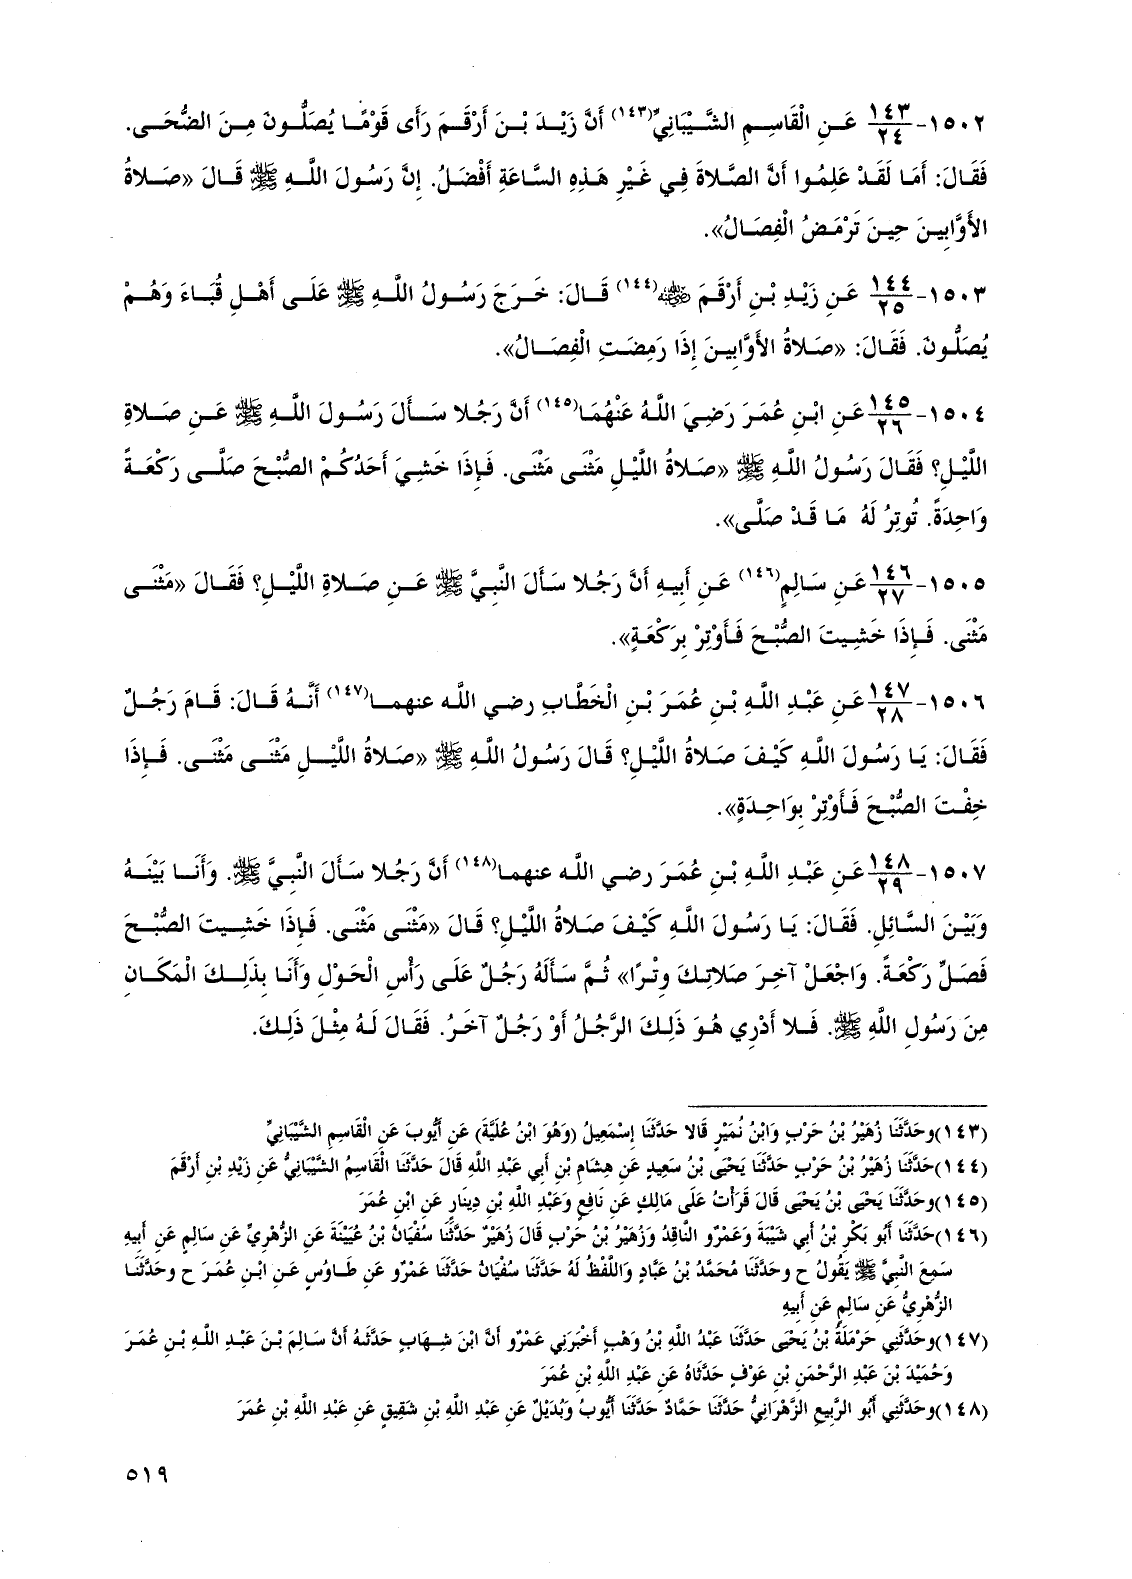 ١٥٠٢-١٤٣/٢٤ عَنِ الْقَاسِمِ الشَّيْبَانِيِّ(١٤٣) أَنَّ زَيْدَ بْنَ أَرْقَمَ رَأَى قَوْمًا يُصَلُّونَ مِنَ الضُّحَى.
فَقَالَ: أَمَا لَقَدْ عَلِمُوا أَنَّ الصَّلَاةَ فِي غَيْرِ هَذِهِ السَّاعَةِ أَفْضَلُ. إِنَّ رَسُولَ اللَّهِ ﷺ قَالَ «صَلاةُ
الأَوَّابِينَ حِينَ تَرْمَضُ الْفِصَالُ».
١٥٠٣-١٤٤/٢٥ عَنِ زَيْدِ بْنِ أَرْقَمَ رضي الله عنه(١٤٤) قَالَ: خَرَجَ رَسُولُ اللَّهِ ﷺ عَلَى أَهْلِ قُبَاءَ وَهُمْ
يُصَلُّونَ. فَقَالَ: «صَلاةُ الأَوَّابِينَ إِذَا رَمِضَتِ الْفِصَالُ».
١٥٠٤-١٤٥/٢٦ عَنِ ابْنِ عُمَرَ رَضِيَ اللَّهُ عَنْهُمَا(١٤٥) أَنَّ رَجُلا سَأَلَ رَسُولَ اللَّهِ ﷺ عَنِ صَلاةِ
اللَّيْلِ؟ فَقَالَ رَسُولُ اللَّهِ ﷺ «صَلاةُ اللَّيْلِ مَثْنَى مَثْنَى. فَإِذَا خَشِيَ أَحَدُكُمْ الصُّبْحَ صَلَّى رَكْعَةً
وَاحِدَةً. تُوتِرُ لَهُ مَا قَدْ صَلَّى».
١٥٠٥-١٤٦/٢٧ عَنِ سَالِمٍ(١٤٦) عَنِ أَبِيهِ أَنَّ رَجُلا سَأَلَ النَّبِيَّ ﷺ عَنِ صَلاةِ اللَّيْلِ؟ فَقَالَ «مَثْنَى
مَثْنَى. فَإِذَا خَشِيتَ الصُّبْحَ فَأَوْتِرْ بِرَكْعَةٍ».
١٥٠٦-١٤٧/٢٨ عَنِ عَبْدِ اللَّهِ بْنِ عُمَرَ بْنِ الْخَطَّابِ رضي الله عنهما(١٤٧) أَنَّهُ قَالَ: قَامَ رَجُلٌ
فَقَالَ: يَا رَسُولَ اللَّهِ كَيْفَ صَلاةُ اللَّيْلِ؟ قَالَ رَسُولُ اللَّهِ ﷺ «صَلاةُ اللَّيْلِ مَثْنَى مَثْنَى. فَإِذَا
خِفْتَ الصُّبْحَ فَأَوْتِرْ بِوَاحِدَةٍ».
١٥٠٧-١٤٨/٢٩ عَنِ عَبْدِ اللَّهِ بْنِ عُمَرَ رضي الله عنهما(١٤٨) أَنَّ رَجُلا سَأَلَ النَّبِيَّ ﷺ. وَأَنَا بَيْنَهُ
وَبَيْنَ السَّائِلِ. فَقَالَ: يَا رَسُولَ اللَّهِ كَيْفَ صَلاةُ اللَّيْلِ؟ قَالَ «مَثْنَى مَثْنَى. فَإِذَا خَشِيتَ الصُّبْحَ
فَصَلِّ رَكْعَةً. وَاجْعَلْ آخِرَ صَلاتِكَ وِتْرًا» ثُمَّ سَأَلَهُ رَجُلٌ عَلَى رَأْسِ الْحَوْلِ وَأَنَا بِذَلِكَ الْمَكَانِ
مِنَ رَسُولِ اللَّهِ ﷺ. فَلا أَدْرِي هُوَ ذَلِكَ الرَّجُلُ أَوْ رَجُلٌ آخَرُ. فَقَالَ لَهُ مِثْلَ ذَلِكَ.
(١٤٣)وحَدَّثَنَا زُهَيْرُ بْنُ حَرْبٍ وَابْنُ نُمَيْرٍ قَالا حَدَّثَنَا إِسْمَعِيلُ (وَهُوَ ابْنُ عُلَيَّةَ) عَنِ أَيُّوبَ عَنِ الْقَاسِمِ الشَّيْبَانِيِّ
(١٤٤)حَدَّثَنَا زُهَيْرُ بْنُ حَرْبٍ حَدَّثَنَا يَحْيَى بْنُ سَعِيدٍ عَنِ هِشَامِ بْنِ أَبِي عَبْدِ اللَّهِ قَالَ حَدَّثَنَا الْقَاسِمُ الشَّيْبَانِيُّ عَنِ زَيْدِ بْنِ أَرْقَمَ
(١٤٥)وحَدَّثَنَا يَحْيَى بْنُ يَحْيَى قَالَ قَرَأْتُ عَلَى مَالِكٍ عَنِ نَافِعٍ وَعَبْدِ اللَّهِ بْنِ دِينَارٍ عَنِ ابْنِ عُمَرَ
(١٤٦)حَدَّثَنَا أَبُو بَكْرِ بْنُ أَبِي شَيْبَةَ وَعَمْرٌو النَّاقِدُ وَزُهَيْرُ بْنُ حَرْبٍ قَالَ زُهَيْرٌ حَدَّثَنَا سُفْيَانُ بْنُ عُيَيْنَةَ عَنِ الزُّهْرِيِّ عَنِ سَالِمٍ عَنِ أَبِيهِ
سَمِعَ النَّبِيَّ ﷺ يَقُولُ ح وحَدَّثَنَا مُحَمَّدُ بْنُ عَبَّادٍ وَاللَّفْظُ لَهُ حَدَّثَنَا سُفْيَانُ حَدَّثَنَا عَمْرٌو عَنِ طَاوُسٍ عَنِ ابْنِ عُمَرَ ح وحَدَّثَنَا
الزُّهْرِيُّ عَنِ سَالِمٍ عَنِ أَبِيهِ
(١٤٧)وحَدَّثَنِي حَرْمَلَةُ بْنُ يَحْيَى حَدَّثَنَا عَبْدُ اللَّهِ بْنُ وَهْبٍ أَخْبَرَنِي عَمْرٌو أَنَّ ابْنَ شِهَابٍ حَدَّثَهُ أَنَّ سَالِمَ بْنَ عَبْدِ اللَّهِ بْنِ عُمَرَ
وَحُمَيْدَ بْنَ عَبْدِ الرَّحْمَنِ بْنِ عَوْفٍ حَدَّثَاهُ عَنِ عَبْدِ اللَّهِ بْنِ عُمَرَ
(١٤٨)وحَدَّثَنِي أَبُو الرَّبِيعِ الزَّهْرَانِيُّ حَدَّثَنَا حَمَّادٌ حَدَّثَنَا أَيُّوبُ وَبُدَيْلٌ عَنِ عَبْدِ اللَّهِ بْنِ شَقِيقٍ عَنِ عَبْدِ اللَّهِ بْنِ عُمَرَ
٥١٩